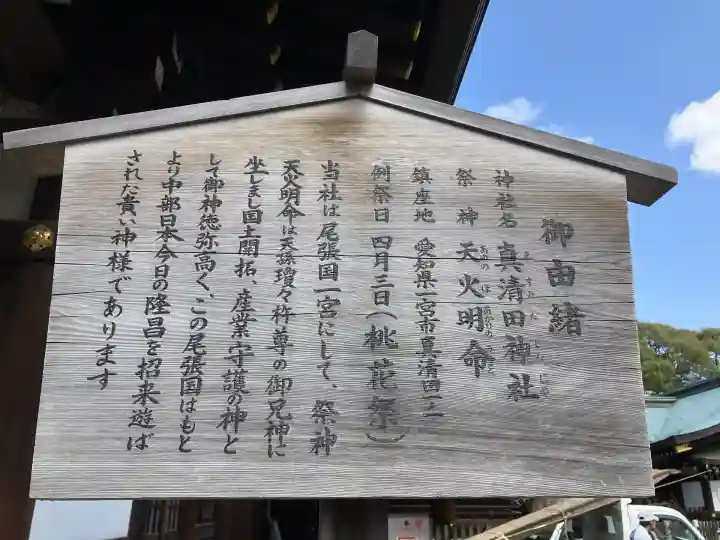 御由緒
神社名 真清田神社
ますみだじんじゃ
祭神 天火明命
あめのほあかりのみこと
鎮座地 愛知県一宮市真清田一ノ二
例祭日 四月三日(桃花祭)
当社は尾張国一宮にして、祭神
天火明命は天孫瓊々杵尊の御兄神に
坐しまし国土開拓、産業守護の神と
して御神徳弥高く、この尾張国はもと
より中部日本今日の隆昌を招来遊ば
された貴い神様であります